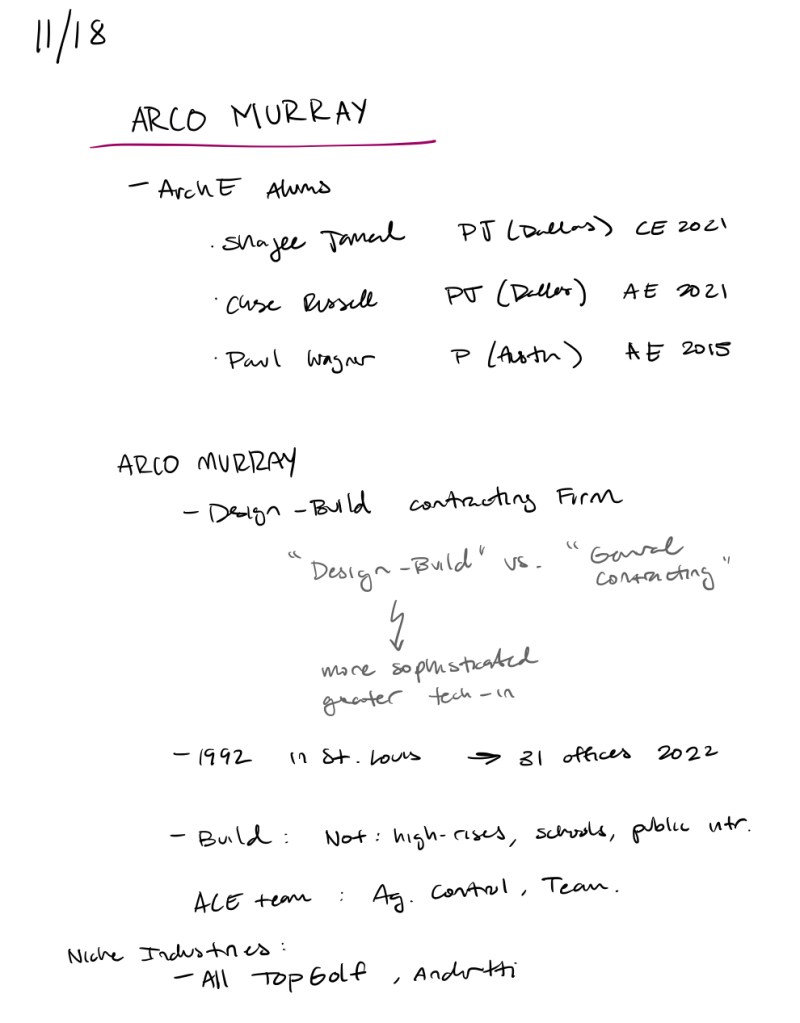 11/18
ARCO MURRAY
- ArchE Alums
· Shajee PJ (Dallas) CE 2021
· Case Russell PJ (Dallas) AE 2021
· Paul Wagner P (Austin) AE 2015
ARCO MURRAY
- Design-Build contracting Firm
"Design-Build" vs. "General contracting"
more sophisticated
greater tech-in
- 1992 in St. Louis → 31 offices 2022
- Build: Not: high-rises, schools, public intr.
ACE team: Ag. Control, Team.
Niche Industries:
- All TopGolf, Andretti